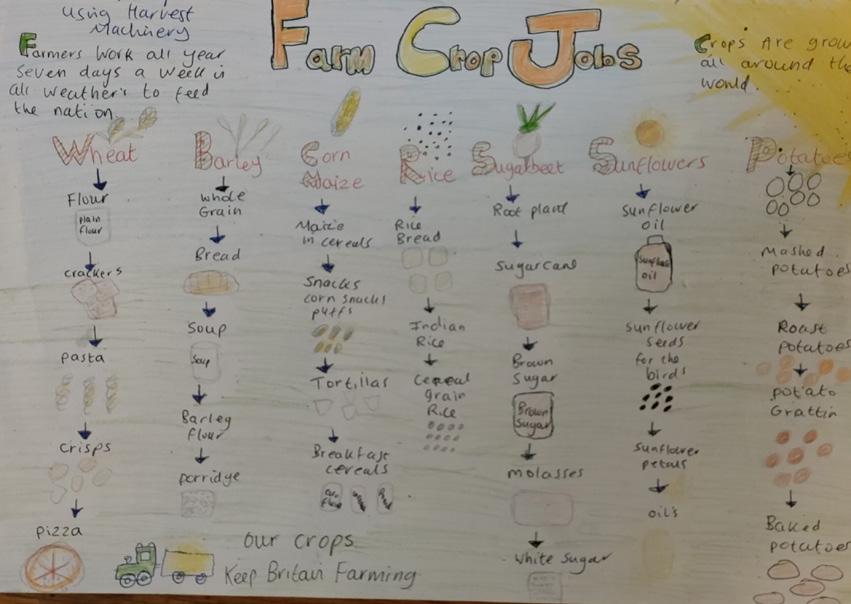 Using Harvest
Machinery
Farmers work all year
seven days a week in
all weather's to feed
the nation.
Farm Crop Jobs
Crops Are grow
all around the
world.
Wheat
Flour
plain
flour
crackers
pasta
crisps
pizza
Barley
whole
Grain
Bread
Soup
Soup
Barley
flour
porridge
Corn
Maize
Maize
in cereals
Snacks
corn snacks
puffs
Tortillas
Breakfast
cereals
Rice
Rice
Bread
Indian
Rice
Cereal
grain
Rice
Sugarbeet
Root plant
Sugarcane
Brown
Sugar
Brown
Sugar
molasses
white sugar
Sunflowers
Sunflower
oil
Sunflower
oil
Sunflower
seeds
for the
birds
Sunflower
petals
oil's
Potatoes
Mashed
potatoes
Roast
potatoes
potato
Grattin
Baked
potatoes
our crops
Keep Britain Farming